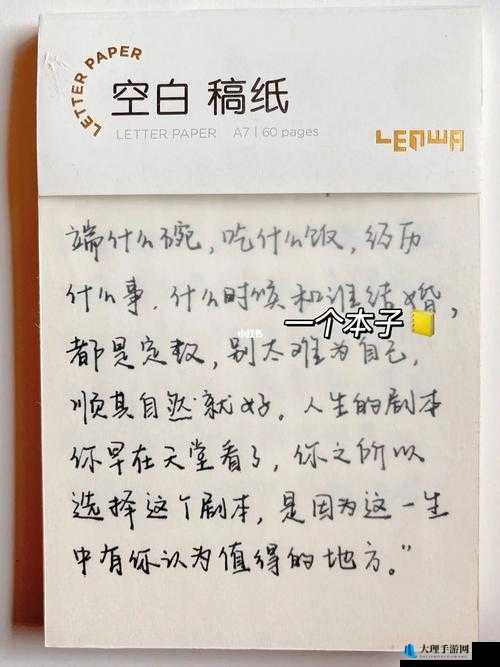 LETTER PAPER
空白 稿纸
LETTER PAPER A7 | 60 pages
LENWA
端什么碗，吃什么饭，经历
什么事，什么时候和谁结婚，
一个本子
都是定数，别太难为自己，
小红书
顺其自然就好。人生的剧本
你早在天堂看了，你之所以
选择这个剧本，是因为这一生
中有你认为值得的地方。”
大理手游网